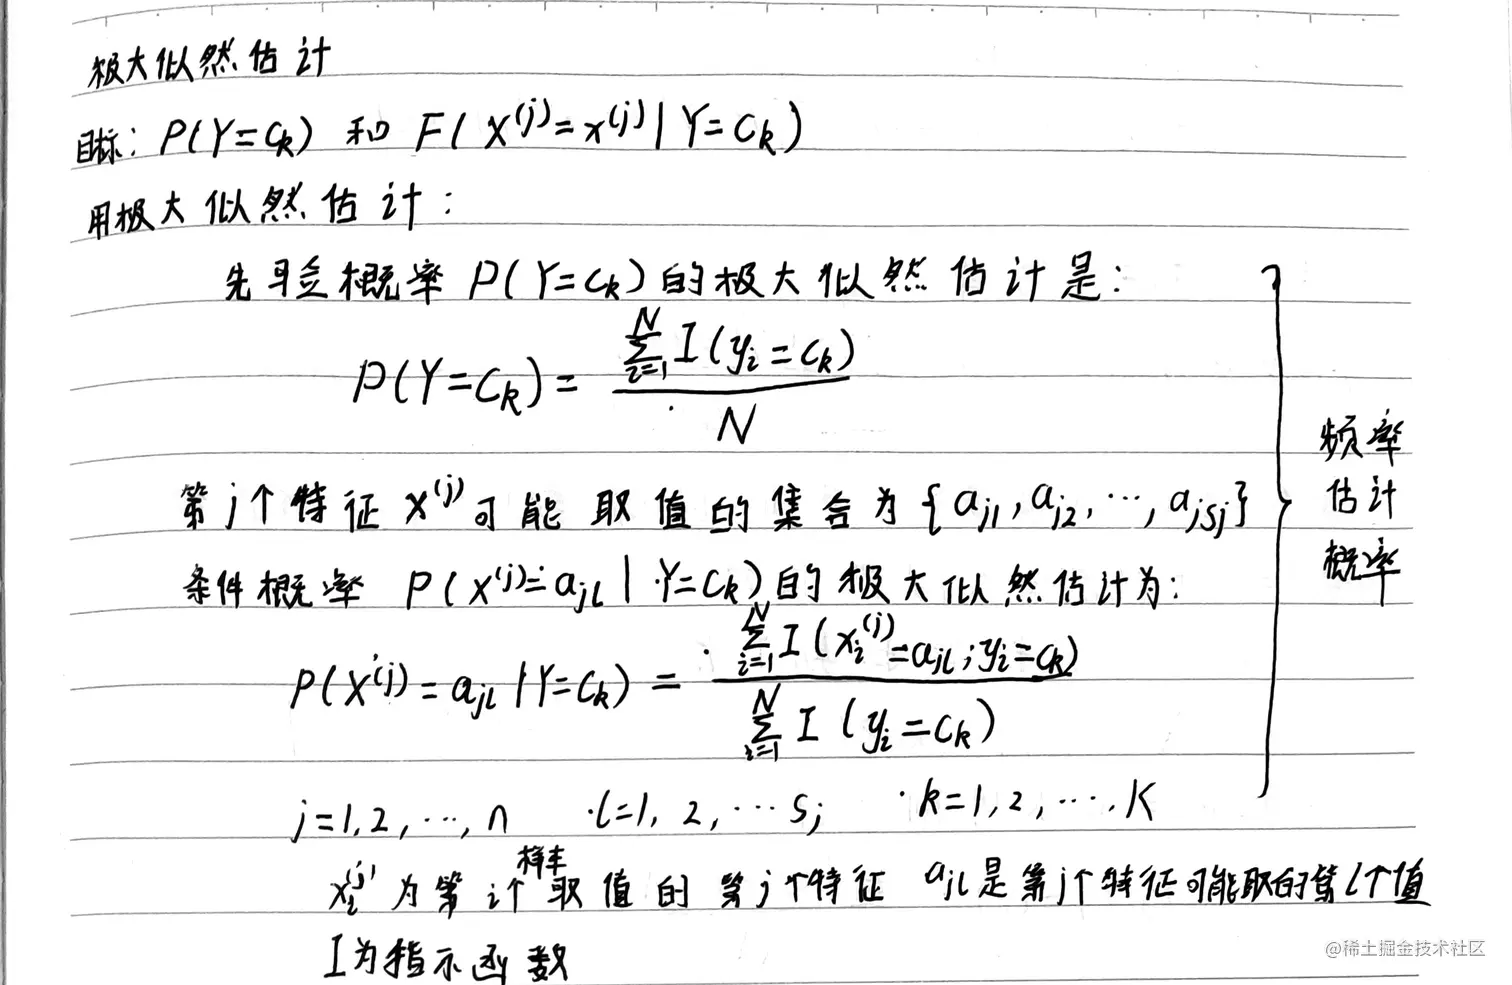 极大似然估计
目标: P(Y=Ck) 和 F(X^(j)=x^(j)|Y=Ck)
用极大似然估计:
先验概率 P(Y=Ck)的极大似然估计是:
P(Y=Ck) = \frac{\sum_{i=1}^{N} I(yi=Ck)}{N}
第j个特征 X^(j)可能取值的集合为{aj1, aj2, ⋯, ajSj}
条件概率 P(X^(j)=ajl|Y=Ck)的极大似然估计为:
P(X^(j)=ajl|Y=Ck) = \frac{\sum_{i=1}^{N} I(xi^(j)=ajl;yi=Ck)}{\sum_{i=1}^{N} I(yi=Ck)}
j=1,2,⋯,n l=1,2,⋯Sj k=1,2,⋯,K
xi^(j)为第i个样本取值的第j个特征 ajl是第j个特征可能取的第l个值
I为指示函数
频率
估计
概率
@稀土掘金技术社区